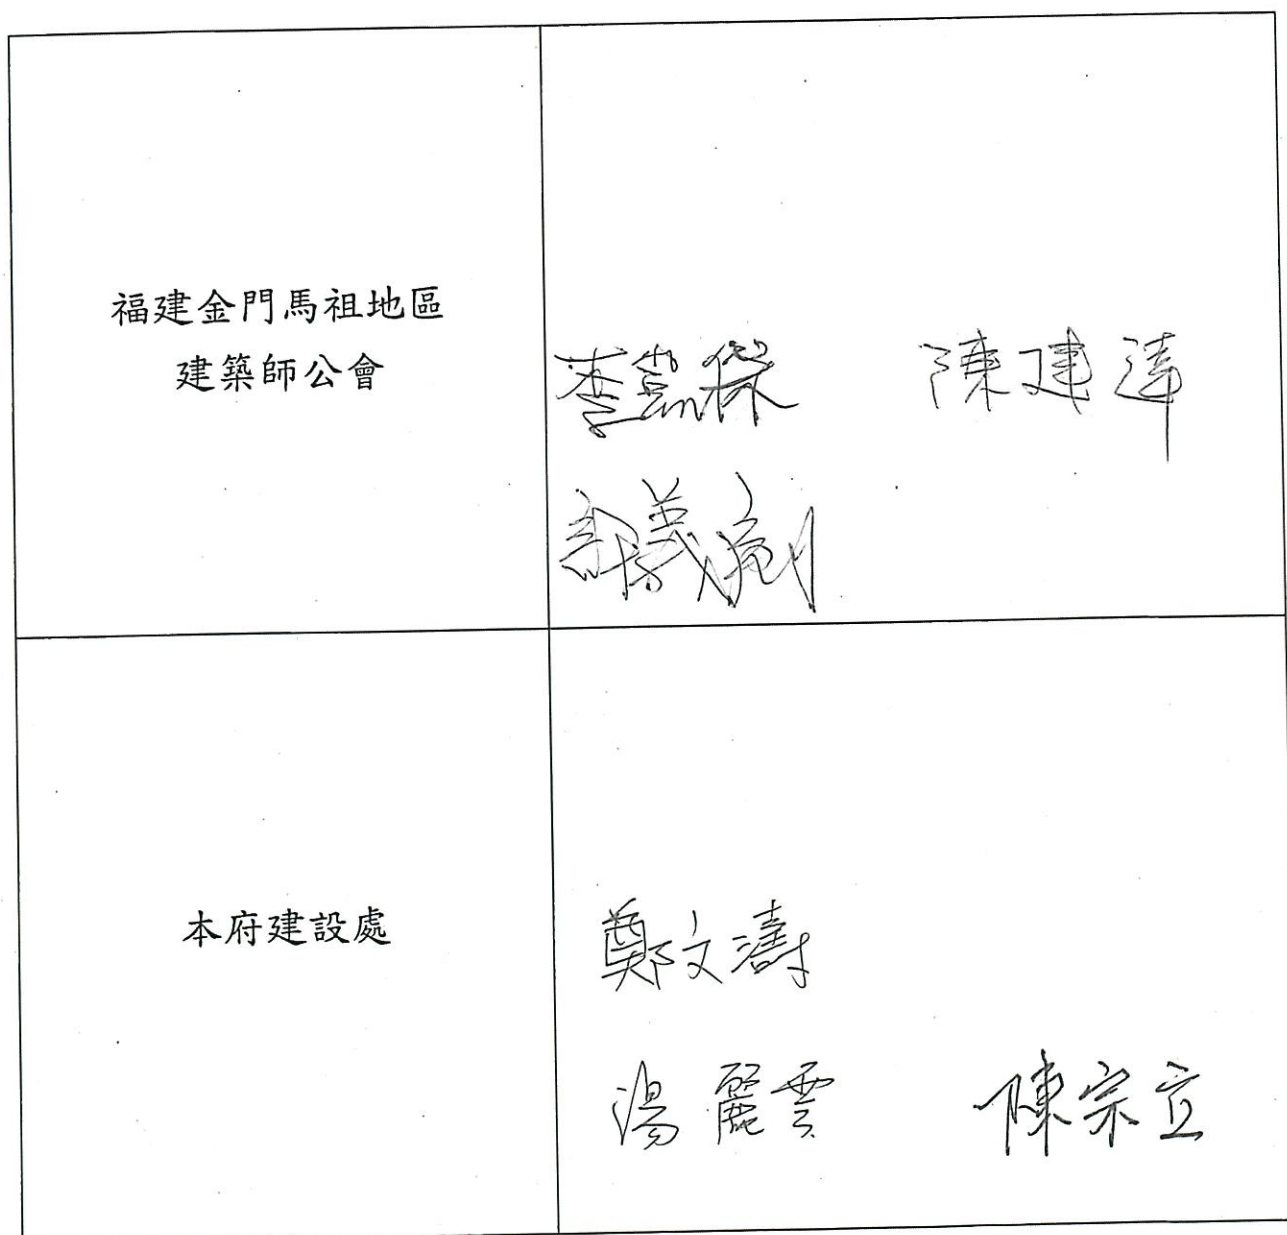 福建金門馬祖地區
建築師公會
陳建
本府建設處
鄭文濤
湯麗雲 陳宗立